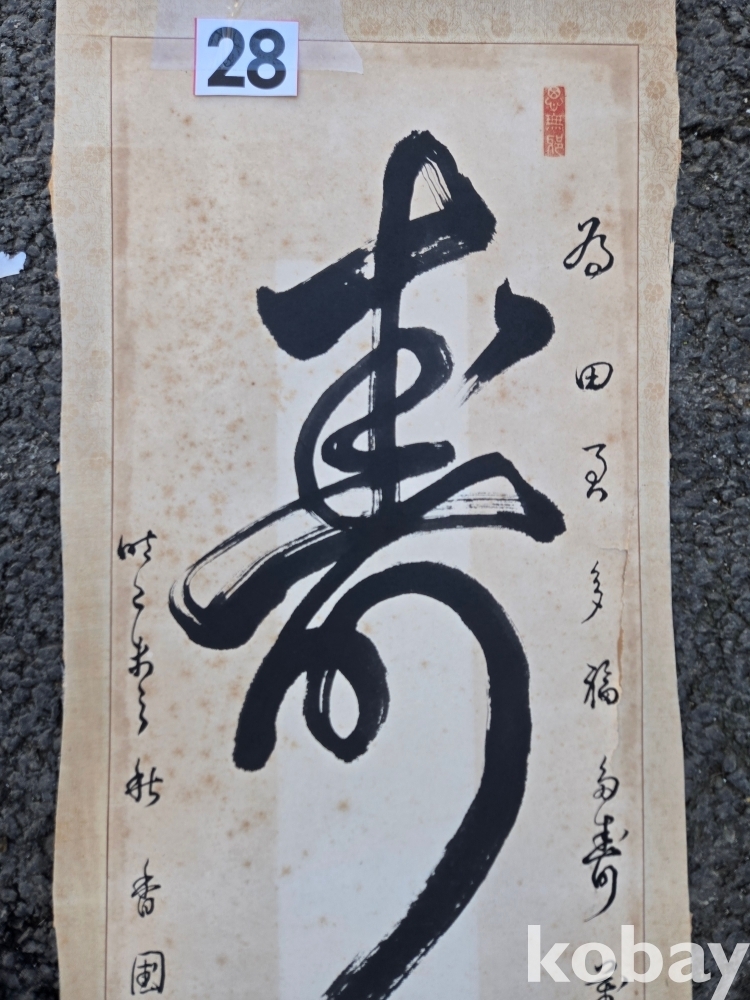 28
思無邪
壽
為田君多福多壽
時乙未之秋 香園
kobay